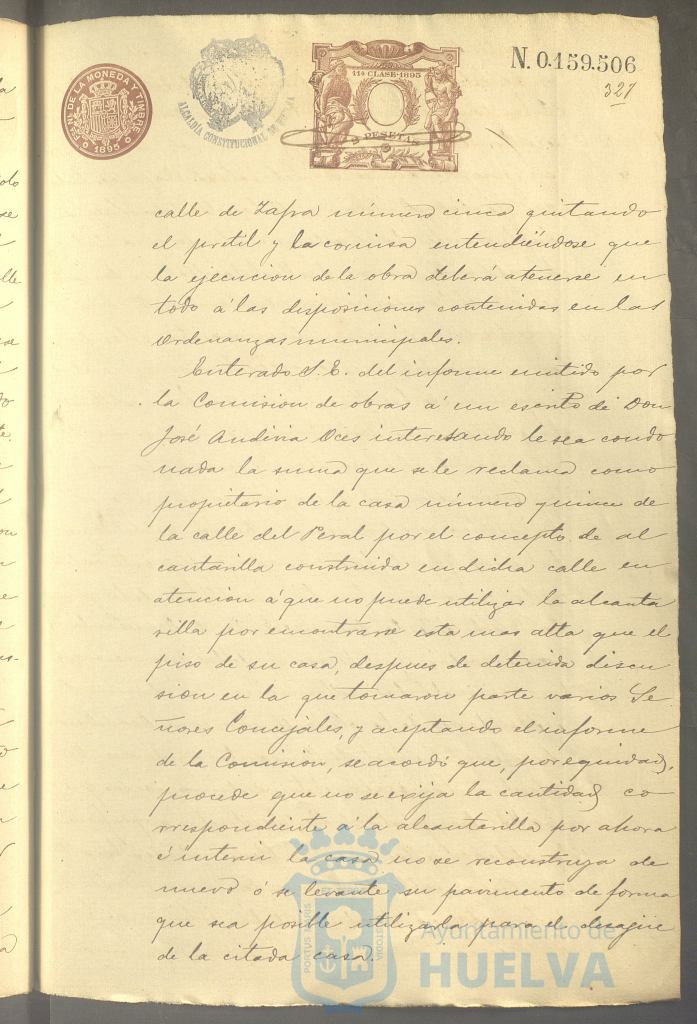 FÁB. NL. DE LA MONEDA Y TIMBRE
1895
ALCALDÍA CONSTITUCIONAL DE HUELVA
11ª CLASE-1895
2 PESETAS
N. 0.159.506
327
calle de Zafra número cinco quitando
el pretil y la cornisa entendiéndose que
la ejecucion de la obra deberá atenerse en
todo á las disposiciones contenidas en las
Ordenanzas municipales.
Enterado S. E. del informe emitido por
la Comision de obras á un escrito de Don
José Andivia Oces interesando le sea condo
nada la suma que se le reclama como
propietario de la casa número quince de
la calle del Peral por el concepto de al
cantarilla construida en dicha calle en
atencion á que no puede utilizar la alcanta
rilla por encontrarse esta mas alta que el
piso de su casa, despues de detenida discu
sion en la que tomaron parte varios Se
ñores Concejales, y aceptando el informe
de la Comision, se acordó que, por equidad,
procede que no se exija la cantidad co
rrespondiente á la alcantarilla por ahora
é interin la casa no se reconstruya de
nuevo ó se levante su pavimento de forma
que sea posible utilizarla para el desagüe
de la citada casa.
PORTUS MARIS
CUSTODIA
Ayuntamiento de
HUELVA